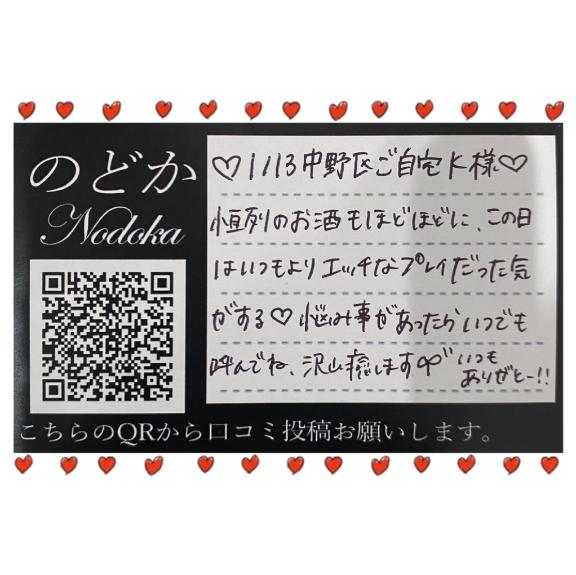 のどか
Nodoka
♡1/13中野区ご自宅K様♡
恒列のお酒もほどほどに、この日
はいつもよりエッチなプレイだった気
がする♡悩み事があったらいつでも
呼んでね、沢山癒します
いつも
ありがとー!!
こちらのQRから口コミ投稿お願いします。